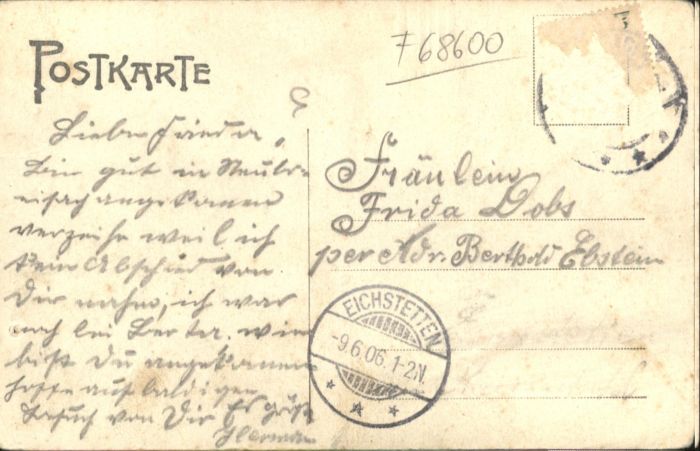 POSTKARTE
768600
Liebe Frieda,
Bin gut in
angekommen
verzeihe weil ich
kein Abschied von
Dir nahm, ich war
noch bei Berta. wie
bist Du angekommen
hoffe auf baldigen
Besuch von Dir Es grüßt
Herman
Fräulein
Frida Dobs
per Adr. Berthold Ebstein
EICHSTETTEN
-9.6.06.1-2N.